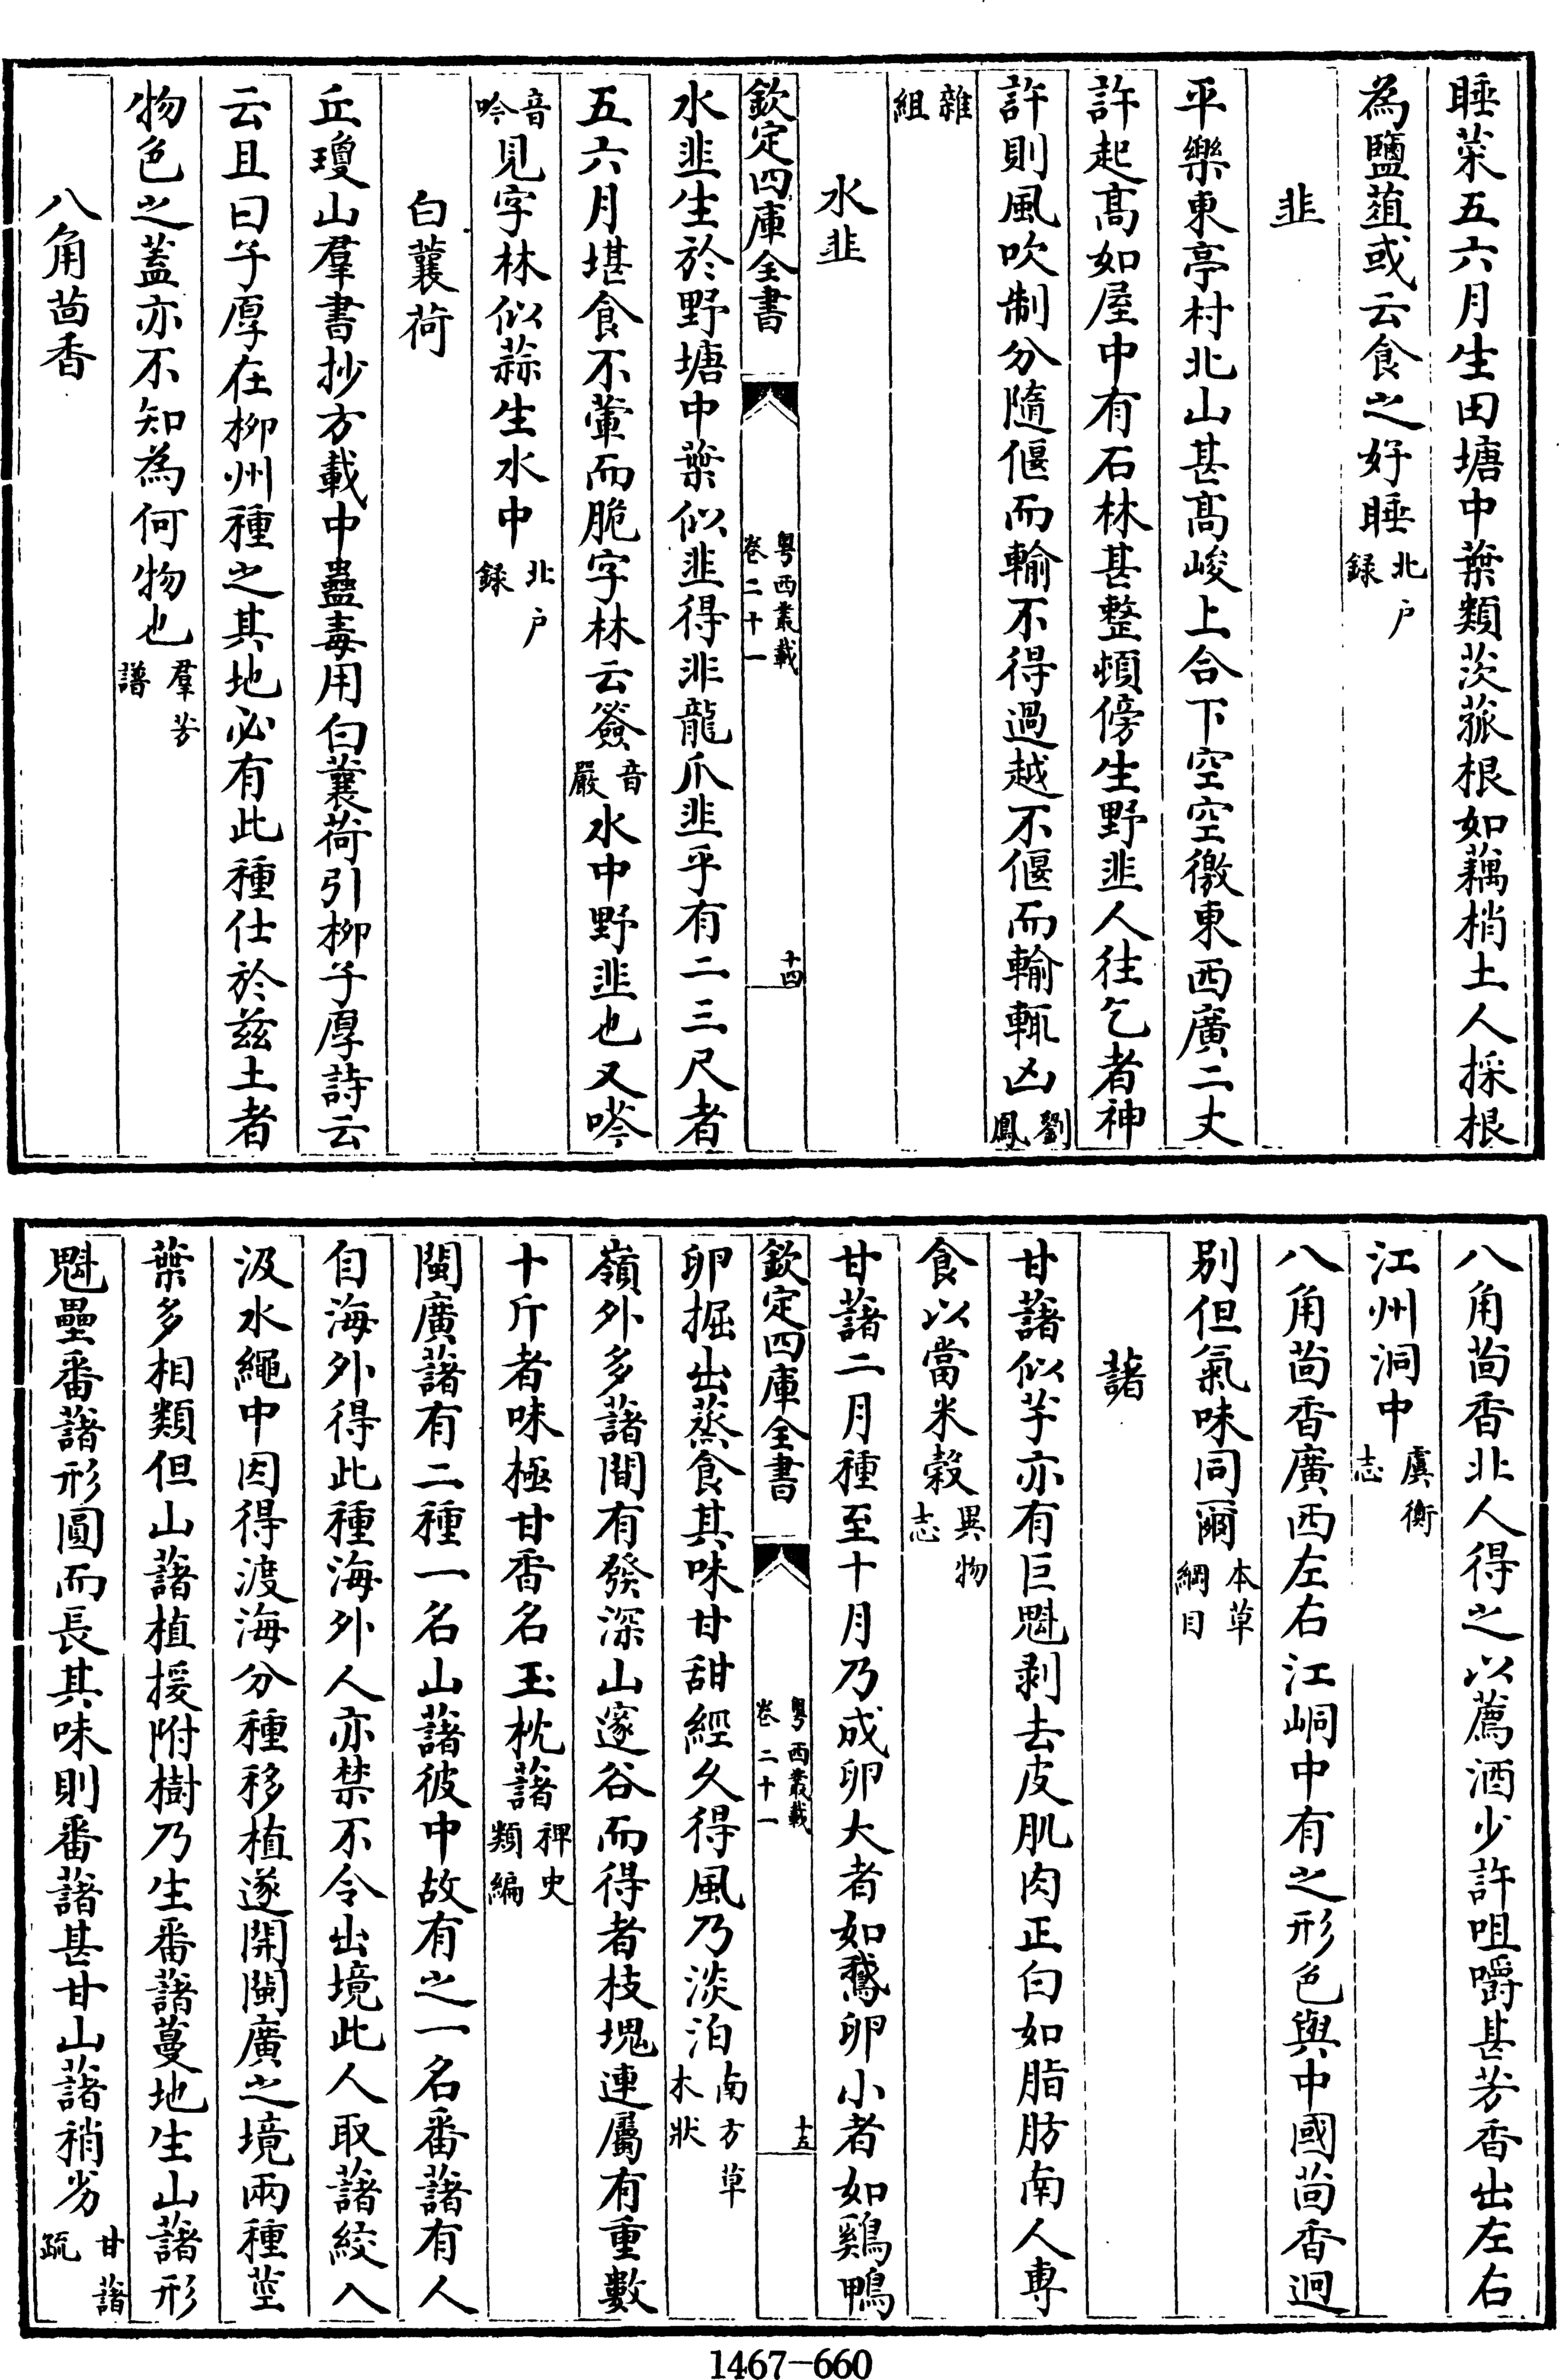 睡菜五六月生田塘中葉類茨菰根如藕梢土人採根
為鹽葅或云食之好睡北戶錄
韭
平樂東亭村北山甚高峻上合下空空徼東西廣二丈
許起高如屋中有石林甚整頓傍生野韭人往乞者神
許則風吹制分隨偃而輸不得過越不偃而輸輒凶劉鳳
雜組
水韭
欽定四庫全書
粵西叢載
卷二十一
十四
水韭生於野塘中葉似韭得非龍爪韭乎有二三尺者
五六月堪食不葷而脆字林云䈴音嚴水中野韭也又䔷
音吟見字林似蒜生水中北戶錄
白蘘荷
丘瓊山羣書抄方載中蠱毒用白蘘荷引柳子厚詩云
云且曰子厚在柳州種之其地必有此種仕於兹土者
物色之蓋亦不知為何物也羣芳譜
八角茴香
八角茴香北人得之以薦酒少許咀嚼甚芳香出左右
江州洞中虞衡志
八角茴香廣西左右江峒中有之形色與中國茴香迥
別但氣味同爾本草綱目
藷
甘藷似芋亦有巨魁剥去皮肌肉正白如脂肪南人専
食以當米穀異物志
甘藷二月種至十月乃成卵大者如鵝卵小者如鷄鴨
欽定四庫全書
粵西叢載
卷二十一
十五
卵掘出蒸食其味甘甜經久得風乃淡泊南方草木狀
嶺外多藷間有發深山邃谷而得者枝塊連屬有重數
十斤者味極甘香名玉枕藷稗史類編
閩廣藷有二種一名山藷彼中故有之一名番藷有人
自海外得此種海外人亦禁不令出境此人取藷絞入
汲水繩中因得渡海分種移植遂開閩廣之境兩種莖
葉多相類但山藷植援附樹乃生番藷蔓地生山藷形
魁壘番藷形圓而長其味則番藷甚甘山藷稍劣甘藷疏
1467-660